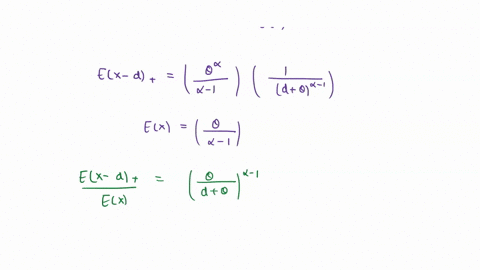 E(x-d)+ = (θ^α / α-1) (1 / (d+θ)^α-1)
E(x) = (θ / α-1)
E(x-d)+ / E(x) = (θ / d+θ)^α-1